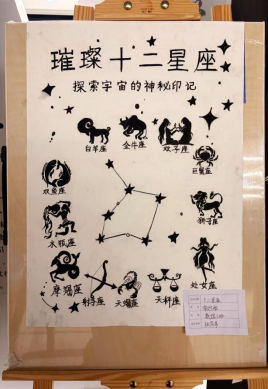 璀璨十二星座
探索宇宙的神秘印记
白羊座
金牛座
双子座
巨蟹座
狮子座
处女座
天秤座
天蝎座
射手座
摩羯座
水瓶座
双鱼座
十二星座